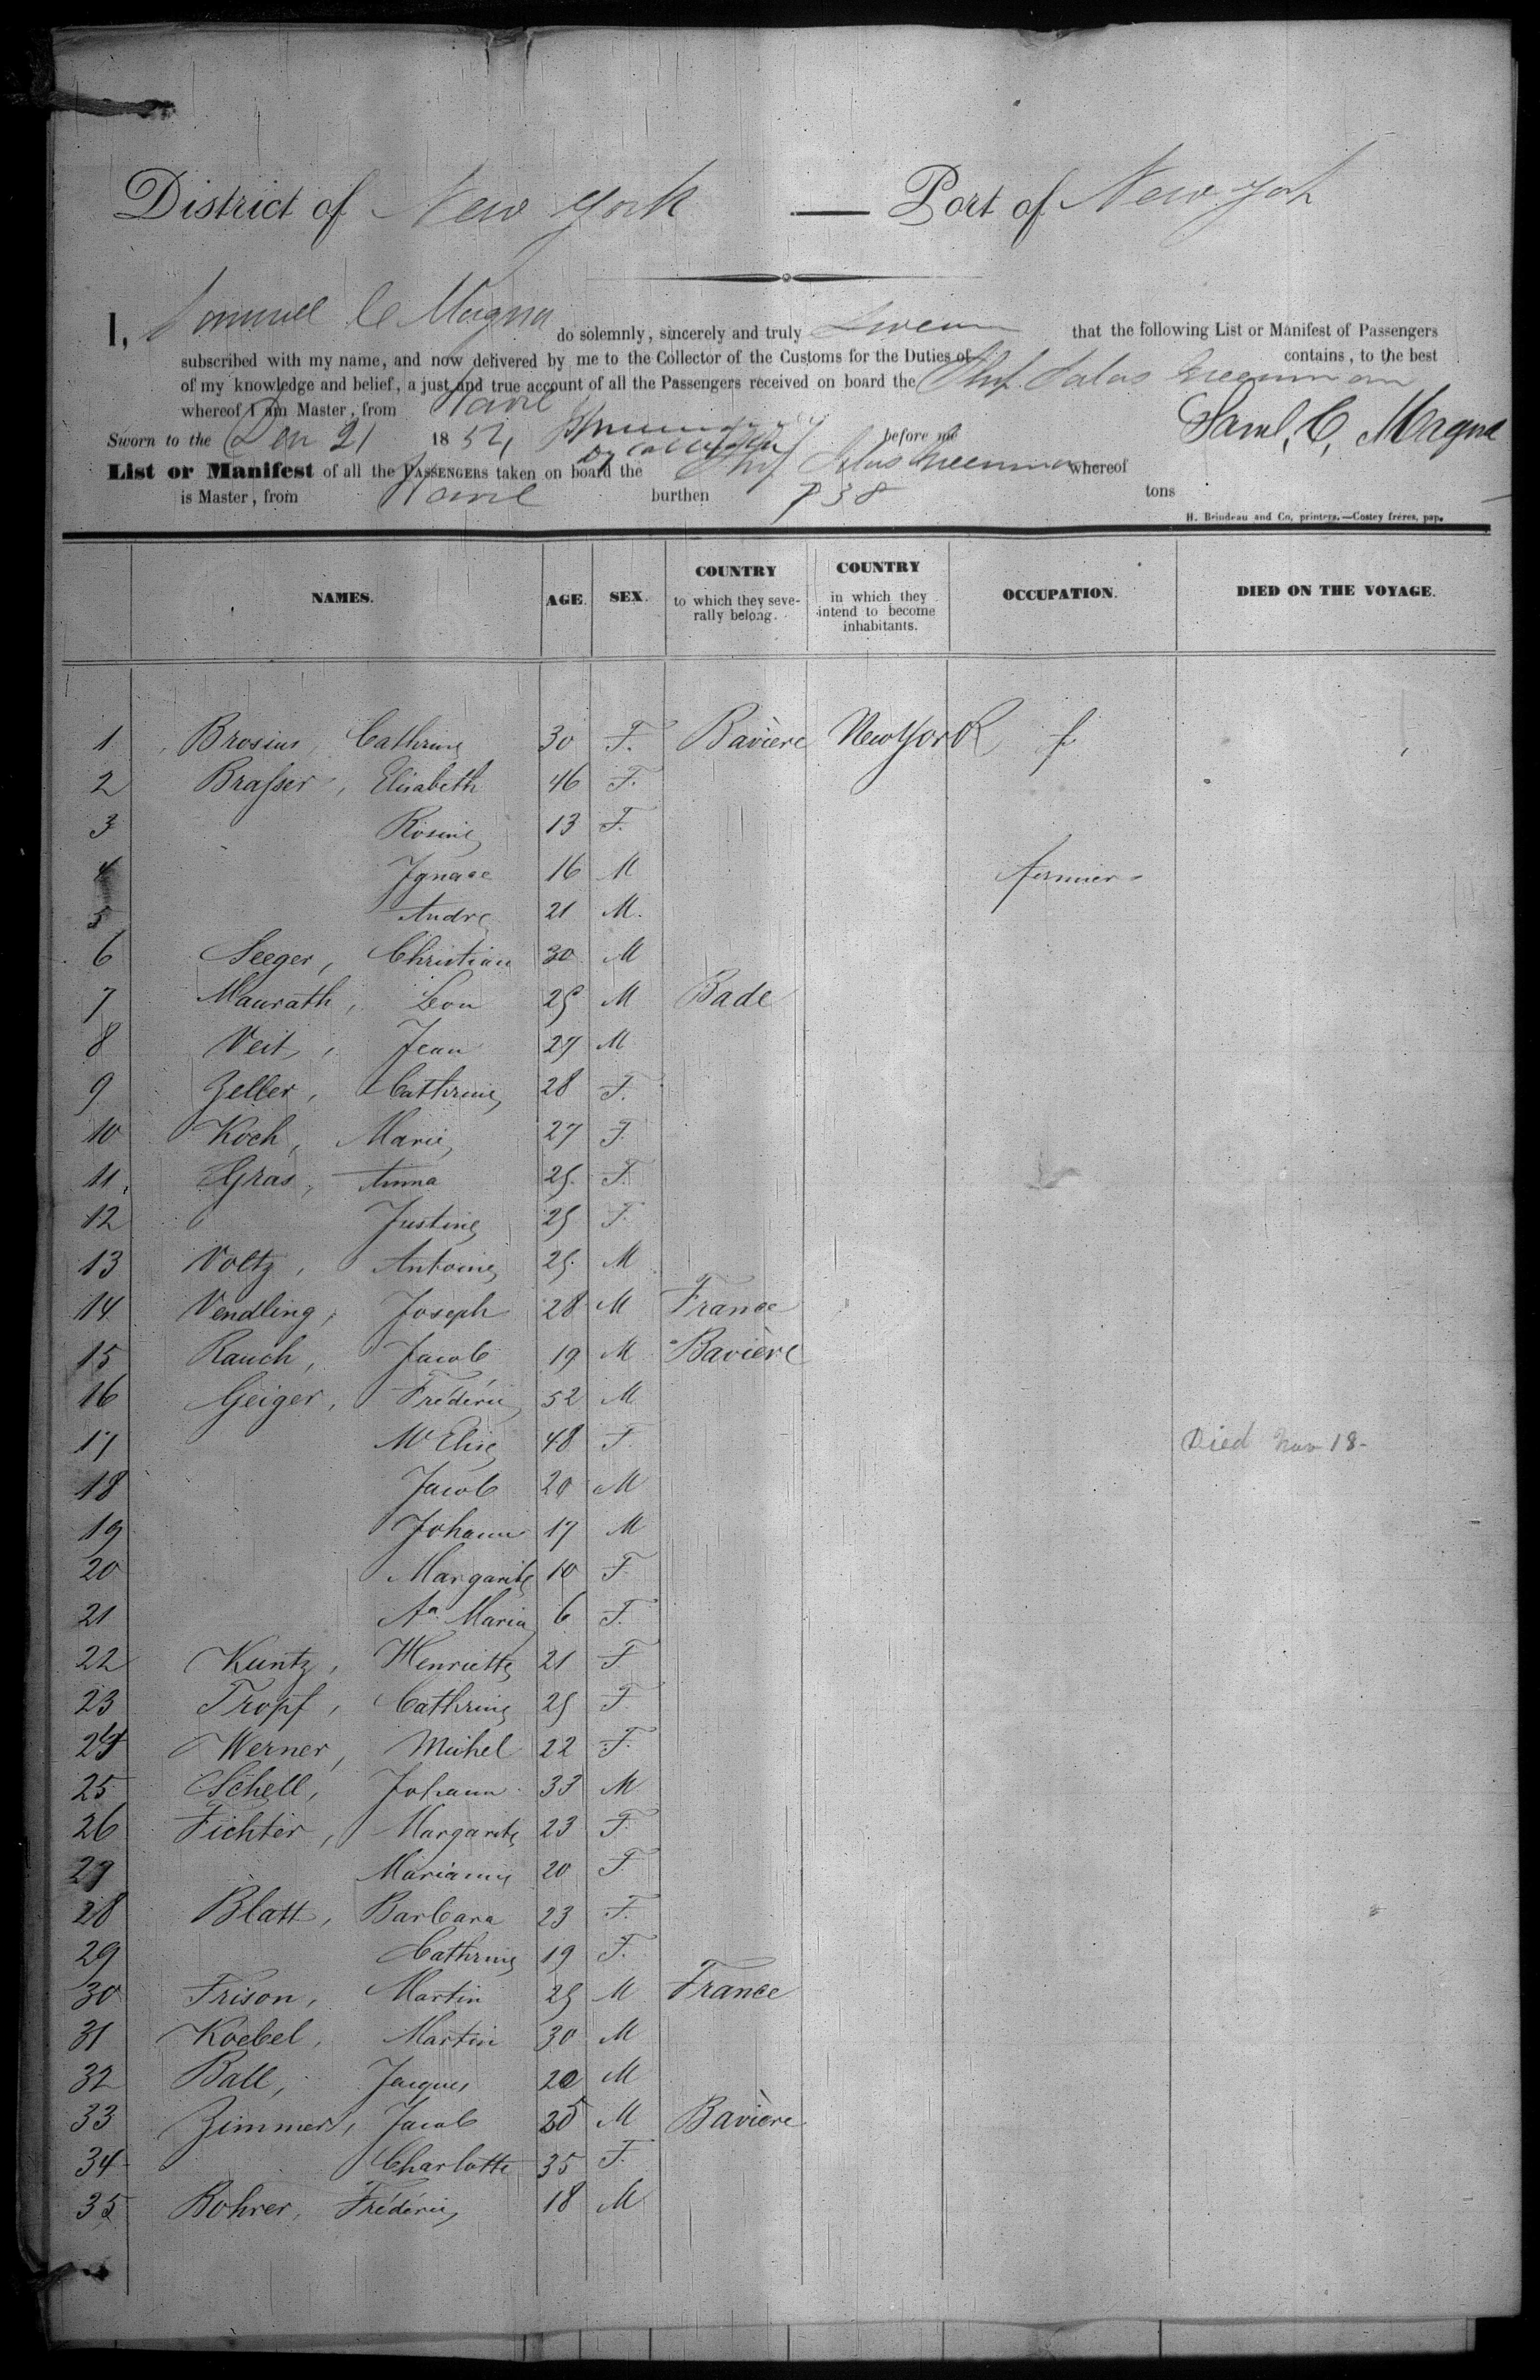 District of New York — Port of New York
I, Samuel C Magna do solemnly, sincerely and truly Swear that the following List or Manifest of Passengers
subscribed with my name, and now delivered by me to the Collector of the Customs for the Duties of contains, to the best
of my knowledge and belief, a just and true account of all the Passengers received on board the Ship Silas Greenman
whereof I am Master, from Havre
Saml, C, Magna
Sworn to the 21 185 before me
List or Manifest of all the PASSENGERS taken on board the Ship Silas Greenman whereof
is Master, from Havre burthen 738 tons
H. Brindeau and Co, printers.—Costey frères, pap.
NAMES. AGE. SEX. COUNTRY to which they severally belong. COUNTRY in which they intend to become inhabitants. OCCUPATION. DIED ON THE VOYAGE.
1 Brosius, Cathrine 30 F. Bavière New York
2 Brasser, Elisabeth 46 F.
3 Rosine 13 F.
4 Ignace 16 M fermier
5 Andre 21 M.
6 Seeger, Christian 30 M
7 Maurath, Leon 25 M Bade
8 Veit, Jean 27 M
9 Zeller, Cathrine 28 F.
10 Koch, Marie 27 F.
11 Gras, Anna 25. F.
12 Justine 25 F.
13 Voltz, Antoine 25. M
14 Vendling, Joseph 28 M France
15 Rauch, Jacob 19 M Bavière
16 Geiger, Fréderic 52 M
17 Mr Elise 48 F. Died Nov 18-
18 Jacob 20 M
19 Johann 17 M
20 Margarite 10 F
21 Aa Maria 6 F.
22 Kuntz, Henriette 21 F
23 Tropf, Cathrine 25 F
24 Werner, Michel 22 F.
25 Schell, Johann 33 M
26 Fichter, Margarite 23 F.
27 Marianne 20 F
28 Blatt, Barbara 23 F.
29 Cathrine 19 F.
30 Frison, Martin 25 M France
31 Koebel, Martin 30 M
32 Ball, Jacques 20 M
33 Zimmer, Jacob 35 M Bavière
34 Charlotte 35 F.
35 Bohrer, Fréderic 18 M